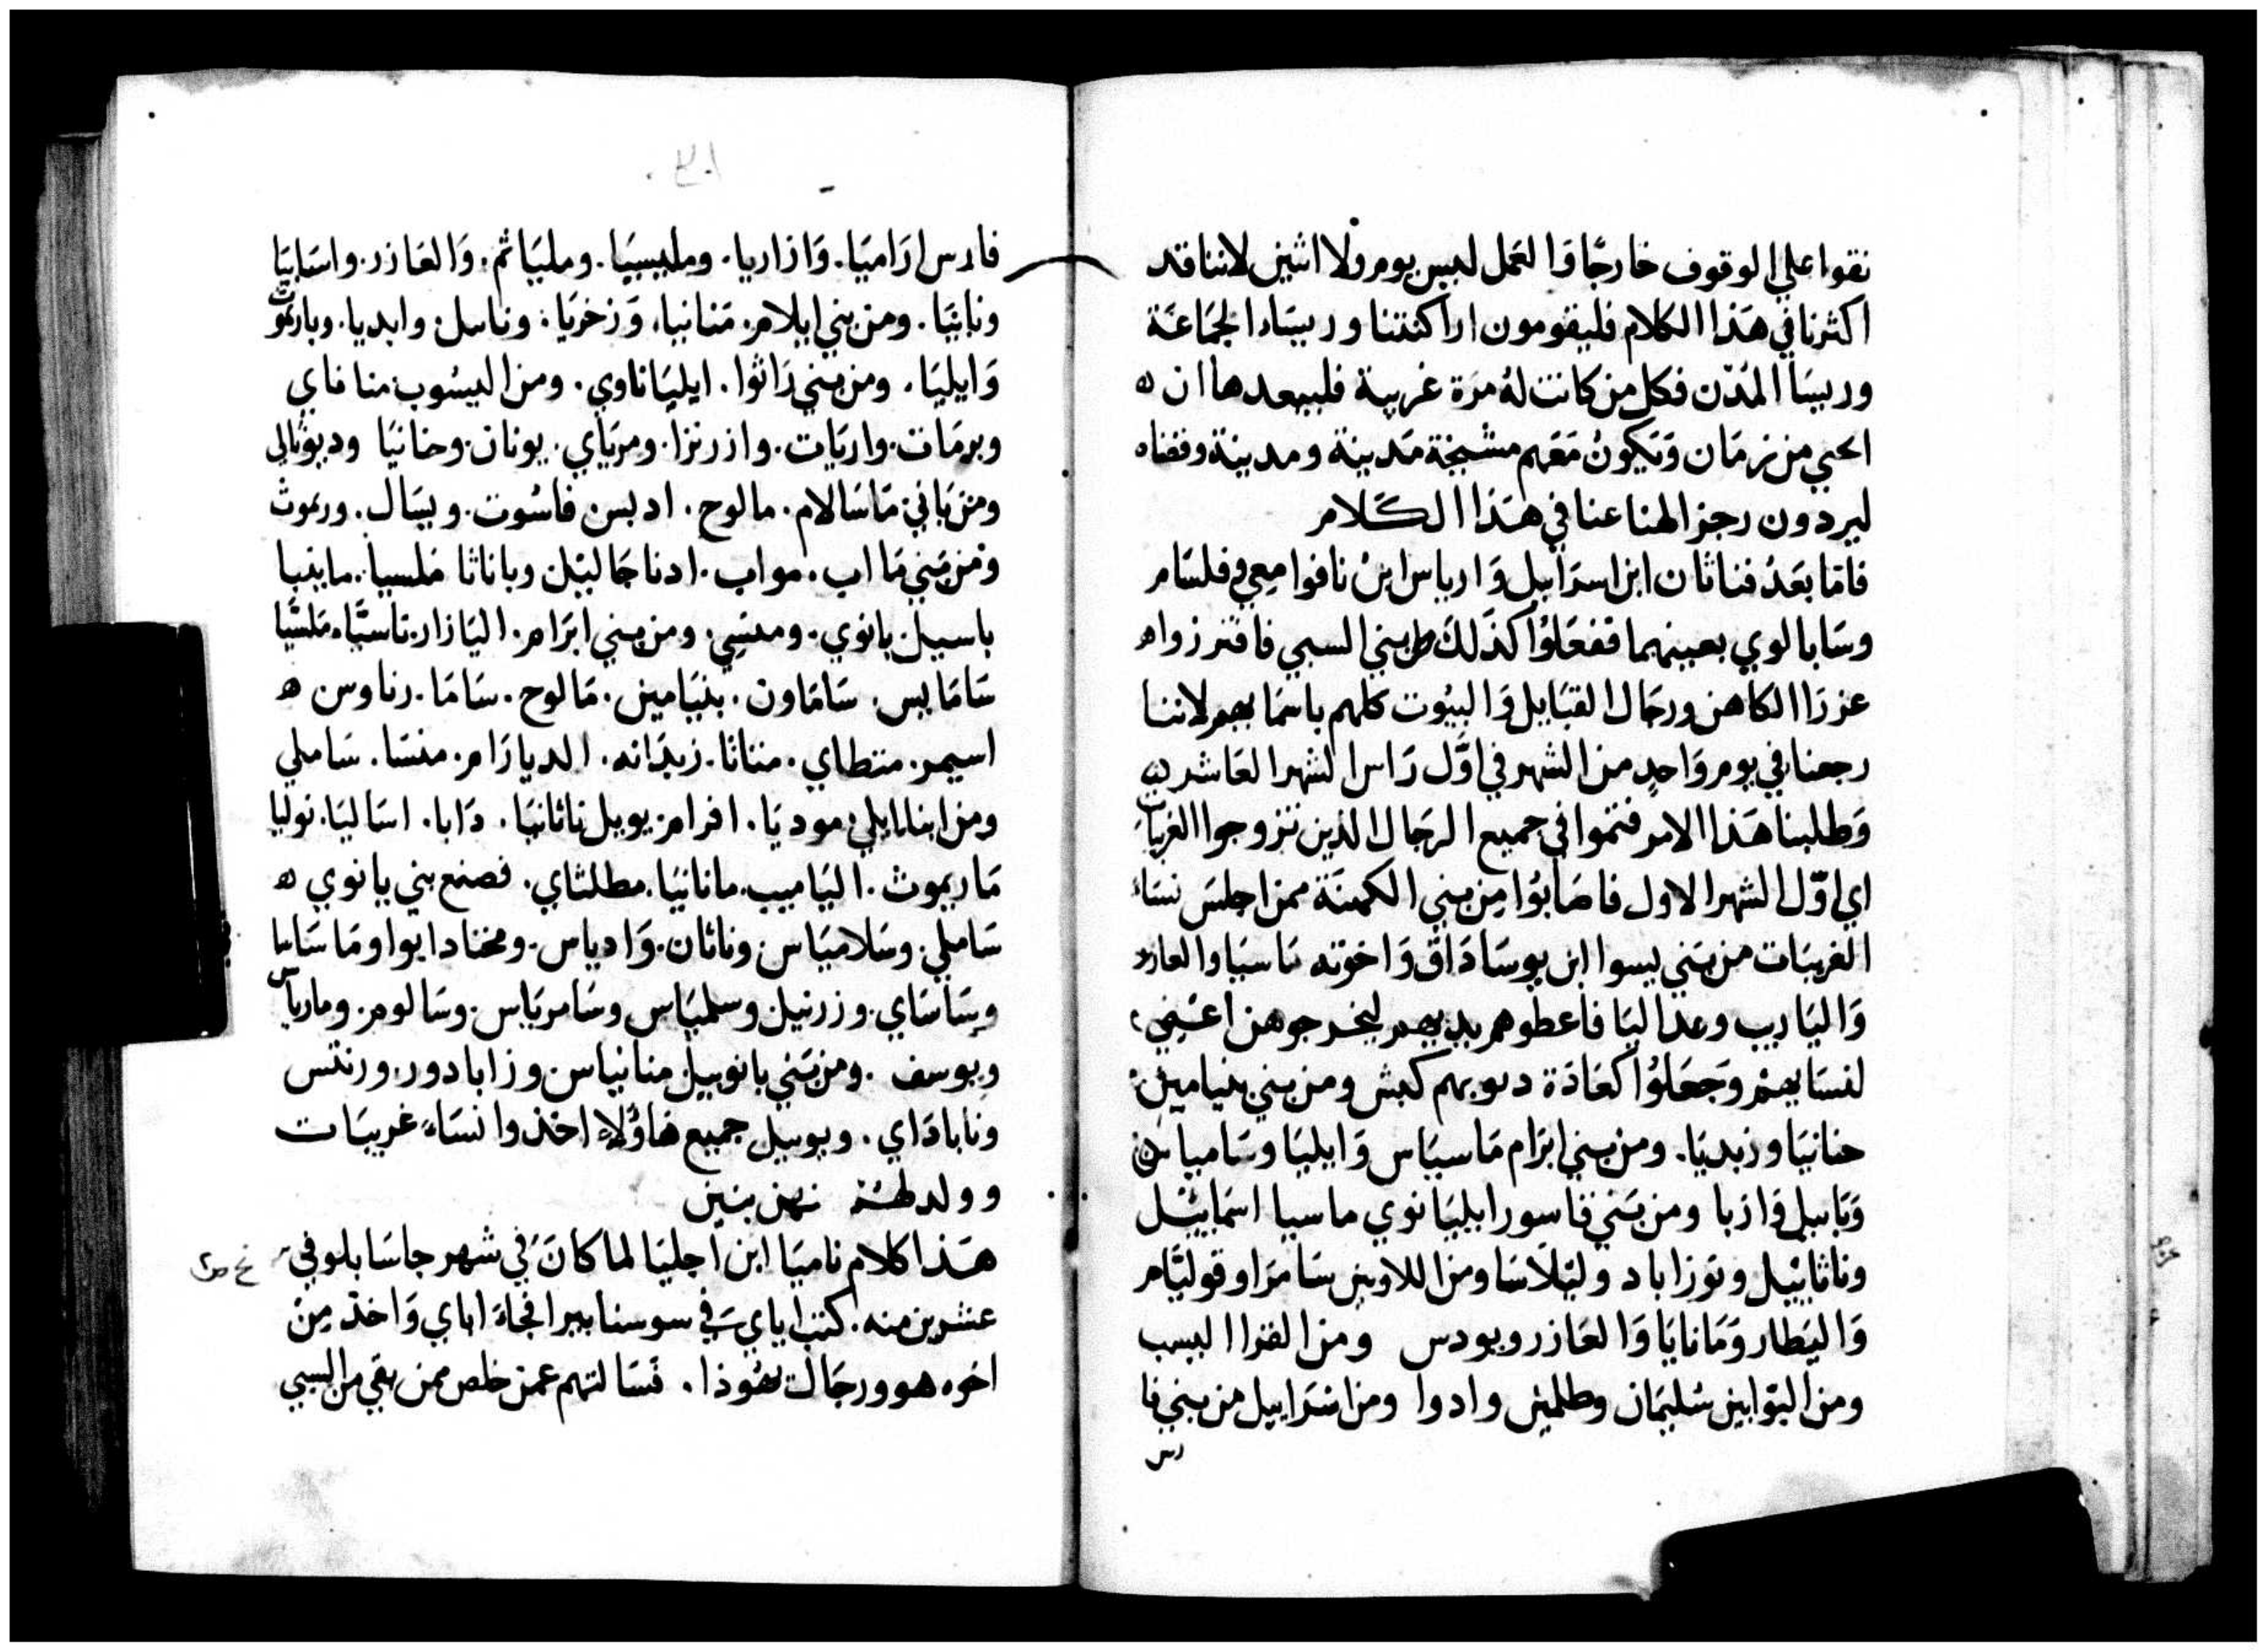 نقوا علي الوقوف خارجًا وَالعَمل لىيس يومر ولا اثنين لاننا قد
اكثرنا في هَذا الكلام فليقومون اراكنتنا وريسَاء الجمَاعَة
وريسَا المُدّن فكل من كانت لهُ مرَة غريبة فليبعدها ان
الحي من زمَان وَيكونُ مَعَهم مشيخة مَدينة ومدينة وقضاه
ليردون رجز الهنا عنا في هَذا الكَلامر
فامّا بعَدُ فناثان ابن اسرَاييل وَارياس ابنُ نافوا معي وفلسَامر
وسَابا لوي يعينهما ففعَلوُا كذَلك بني السبي فافترزواه
عزرَا الكاهن ورجَال القبَايل وَالبيُوت كلهم باسمَايهم لاننا
رجعنا في يومر وَاحدٍ من الشهر في اوَّل رَاس الشهر العَاشر
وَطلبنا هَذا الامر فتموا في جميع الرجَال الذين تزوجوا الغريبات
اي اوّل الشهر الاول فاصَابوُا مِن بني الكهنَة ممن اجلسَ نسَاء
الغريبَات من بَني يسوا ابن يوسَادَاق وَاخوته مَاسيَا والعازر
وَاليَاريب وعدَاليَا فاعطوهم يديهم ليخرجوهن اعَني
لنسَايهمْ وجَعَلوُا كعَادَة دىوبهم كبش ومن بني بنيامين
حنانيَا وزبديَا. ومن بني ابرَام مَاسيَاس وَايليَا وسَامياس
وَيَاييل وَازيا ومن بَني فاسور ايليَانوي ماسيا اسَمايئيل
وناثانئيل ويَوزاباد وليَلاسَا ومن اللاويين سَامرَا وقوليَّامر
وَاليَطار وَمَانايَا وَالعَازر ويودس ومن القرا اليسب
ومن البوّابين سُليمَان وطلمين وادوا ومن اسَرَاييل من بني فا
رس
فارس ارَاميَا. وَازاريا. وملىيسيَا. ومليَاثم. وَالعَازر. واسَابيَا
ونابيَا. ومن بني ايلامر. مَنانيا. وَزخريَا. وناسل. وابديا. وباريموت
وَايليَا. ومن بني زَاثوا. ايليَاناوي. ومن اليسُوب منافاي
وبرمَات. واريَات. وازرنزا. ومريَاي. يونان. وحنانيَا وديوثالي
ومن بَاني. مَاسَالام. مالوح. ادبس فاسُوت. وبسَال. وريموث
ومن بَني مَااب. مواب. ادنا جَاليَل وباناثا مَلسيا. مابنيا
باسيل يانوي. ومىسي. ومن بني ابرَامر. اليَازار. تاسيَّاه مَلسيَّا
سَامَايس. سَامَاون. بنيَامين. مَالوح. سَامَا. رناوس ه
اسيمر. منتطاي. مناثا. زيدَاته. الديارَامر. منسَا. سَاملي
ومن ابنا ايلي موديَا. افرامز يوىيل ناثانيَا. دَابا. اسَاليَا. نوليا
مَاريموث. اليَاميب. مانانيَا. مطلثاي. فصنع بني يانوي ه
سَاملي. وسَلاميَاس وناثان. وَادياس. ومخنادايوا ومَاسَابيا
وسَاسَاي. وزرنيل وسلميَاس وسَامريَاس. وسَالومر. وماريَاس
ويوسف. ومن بَني يانوييل منانياس وزابادور. ورنتس
ونابادَاي. ويوىيل جميع هَاؤُلاءِ اخذوا نسَاء غريبَات
وولد لهَنْ نهن بنين
هَذا كلام ناميَا ابن اجليَا لما كانَ في شهر جاسَابلو في
عشرين منه. كنت اياي في سوسنا بيرا فجاءَ اباي وَاحد. مِن
اخوه هو ورجَال يهوذا. فسَالتهم عمن خلص ممن بقي من السبي